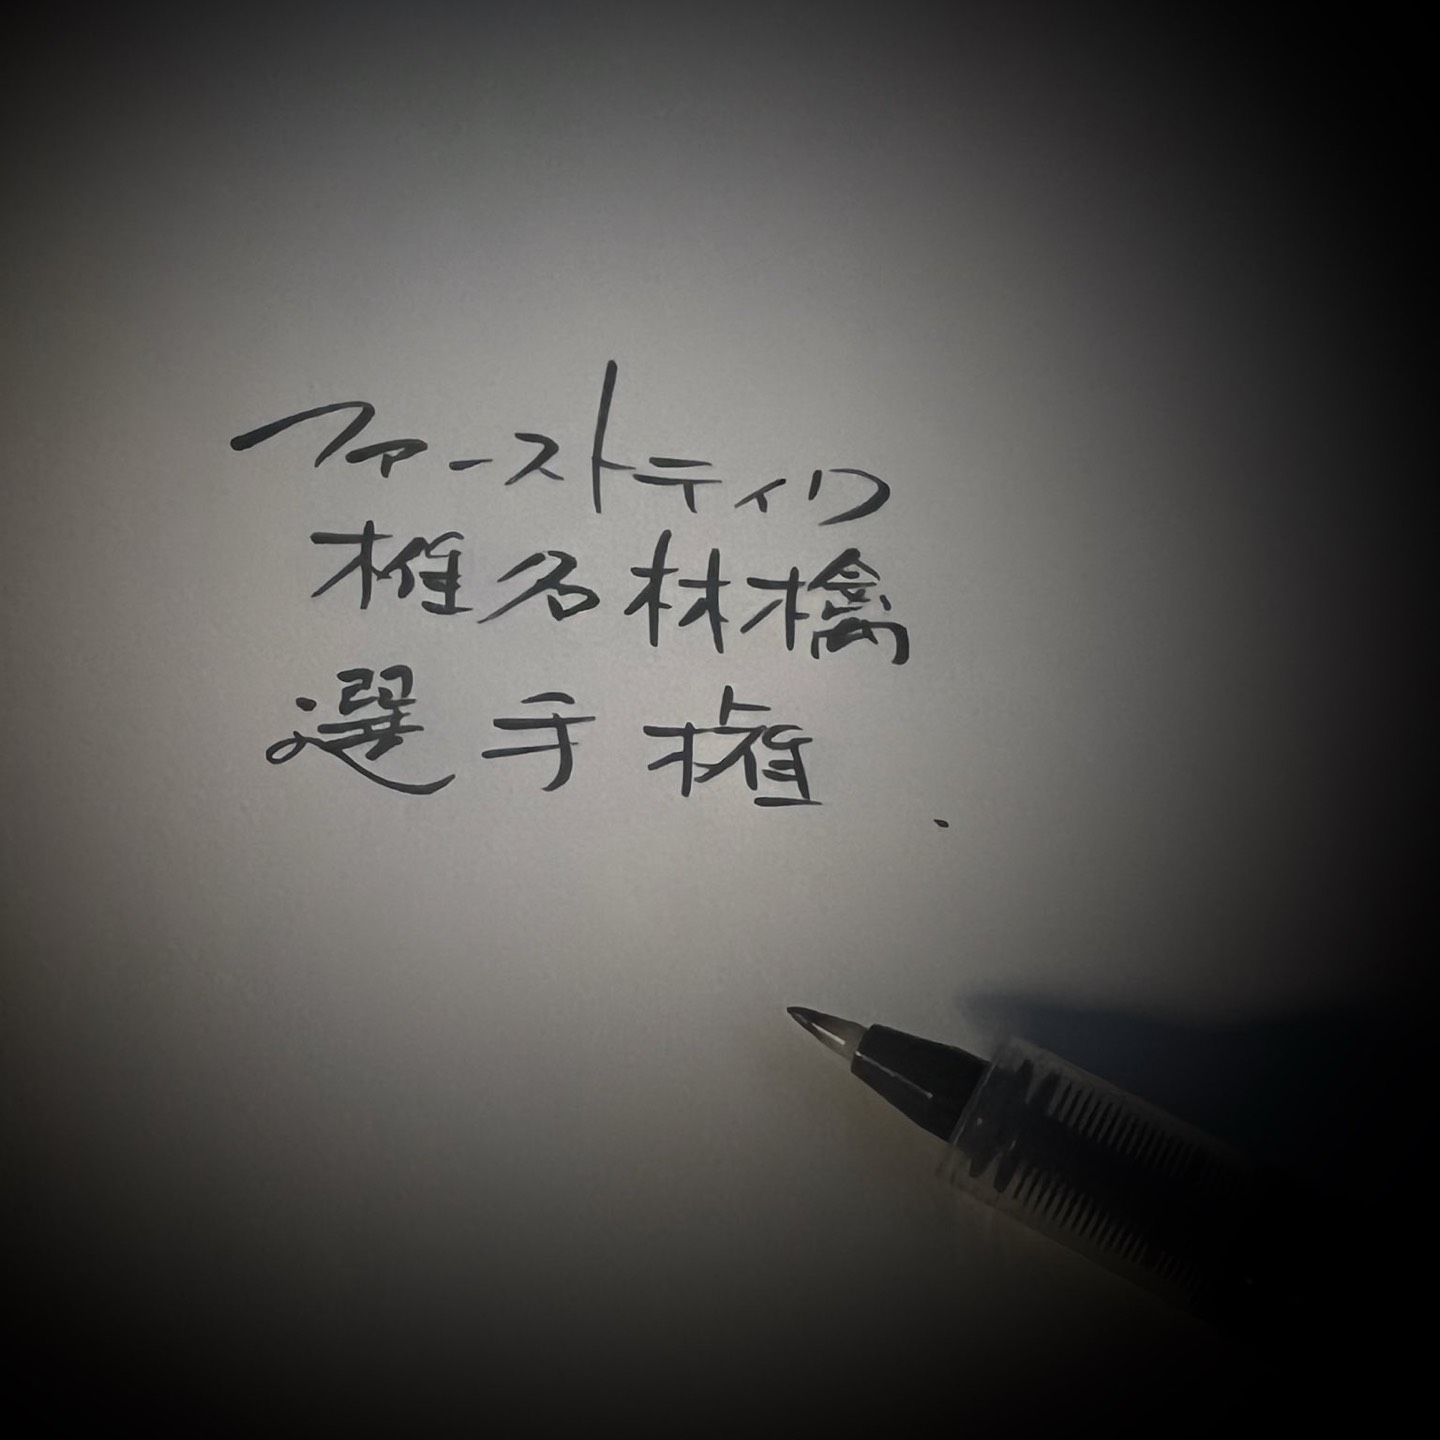 ファーストティク
椎名林檎
選手権.